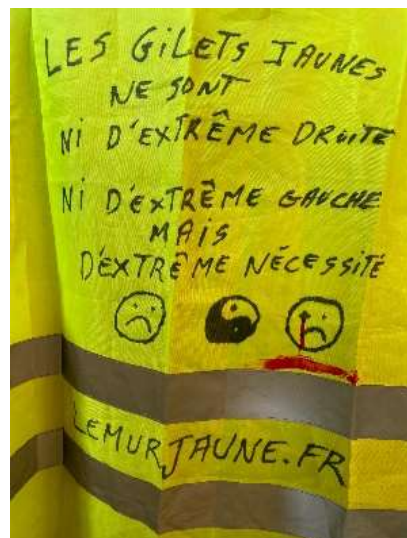 LES GiLETS JAUNES
NE SONT
Ni D'EXTRÊME DROiTE
Ni D'EXTRÊME GAUCHE
MAiS
D'EXTRÊME NÉCESSiTÉ
LEMURJAUNE.FR